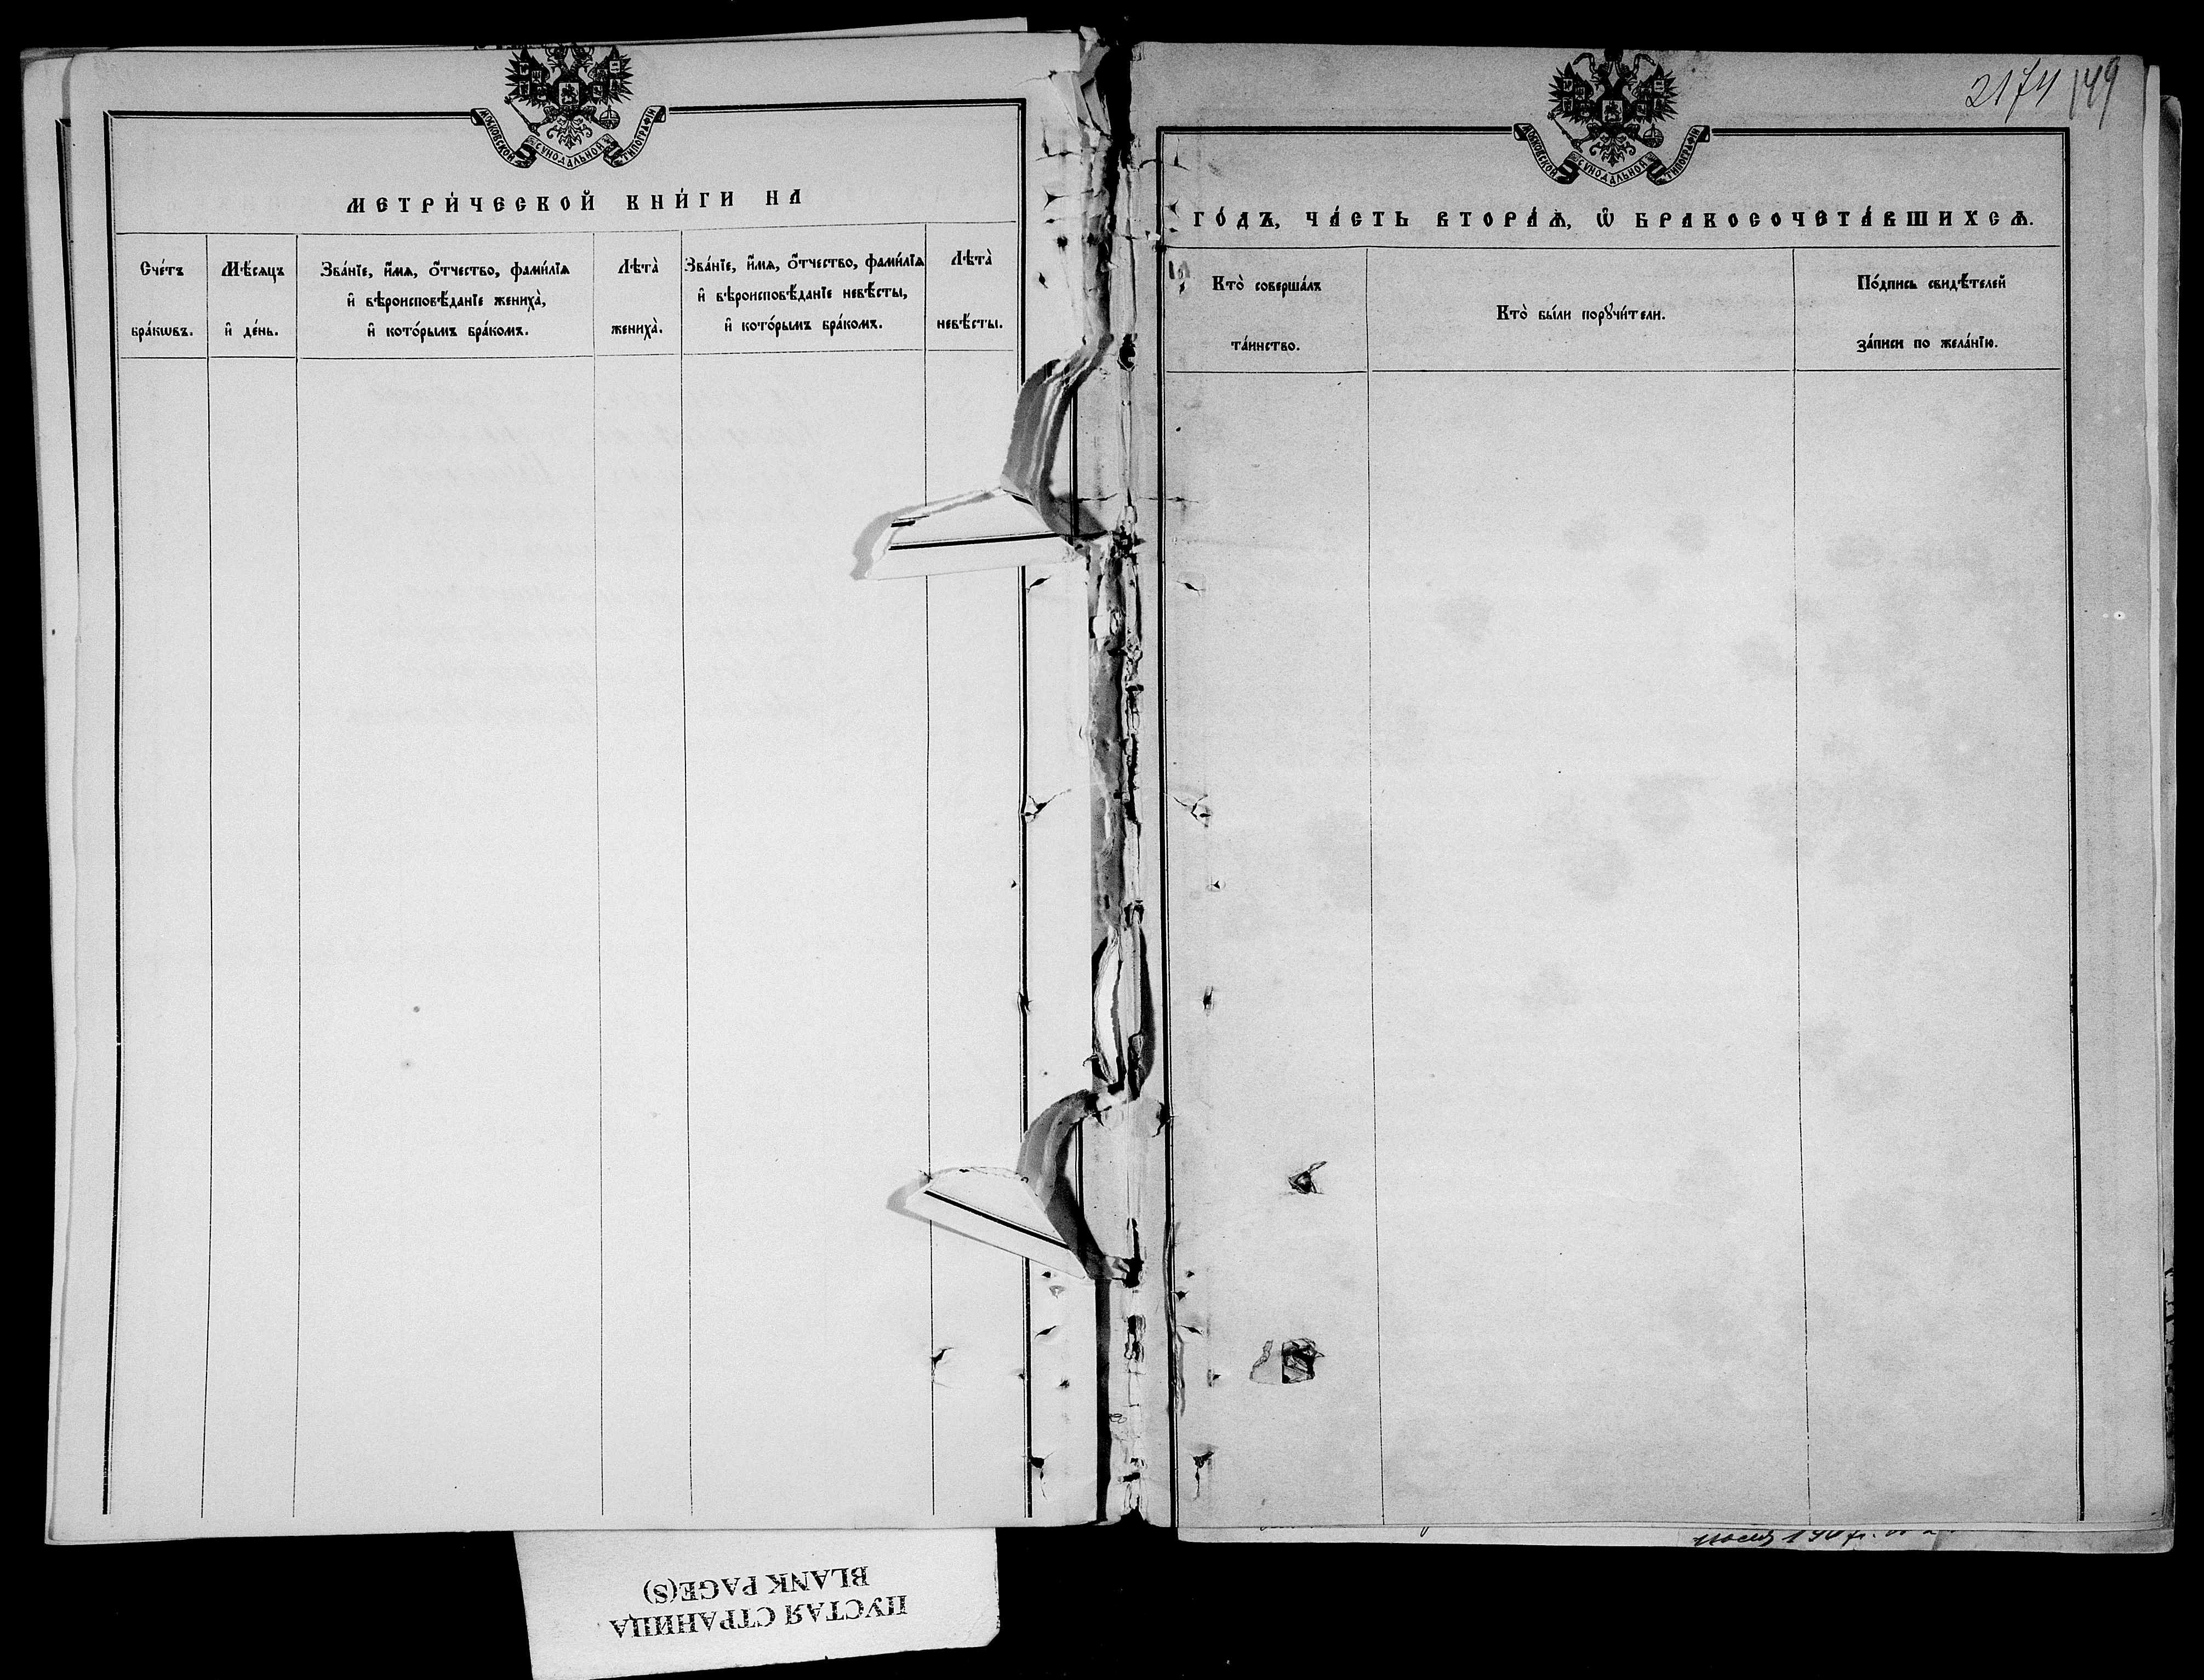 МОСКОВСКОЙ СѴНОДАЛЬНОЙ ТИПОГРАФІИ
МЕТРИ́ЧЕСКОЙ КНИ́ГИ НА
Сче́тъ
бра́кѡвъ.
Мѣ́сяцъ
и҆ де́нь.
Зва́нїе, и҆́мя, ѻ҆́тчество, фами́лїя
и҆ вѣроисповѣ́данїе жениха̀,
и҆ кото́рымъ бра́комъ.
Лѣта̀
жениха̀.
Зва́нїе, и҆́мя, ѻ҆́тчество, фами́лїя
и҆ вѣроисповѣ́данїе невѣ́сты,
и҆ кото́рымъ бра́комъ.
Лѣта̀
невѣ́сты.
2174 149
МОСКОВСКОЙ СѴНОДАЛЬНОЙ ТИПОГРАФІИ
ГО́ДЪ, ЧА́СТЬ ВТОРА́Ѧ, Ѡ҆ БРАКОСОЧЕТА́ВШИХСѦ.
Кто̀ соверша́лъ
та́инство.
Кто̀ бы́ли порꙋчи́тели.
По́дпись свидѣ́телей
за́писи по жела́нїю.
ПУСТАЯ СТРАНИЦА
BLANK PAGE(S)